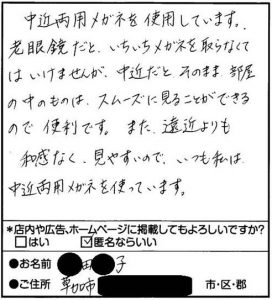 中近両用メガネを使用しています。
老眼鏡だと、いちいちメガネを取らなくて
はいけませんが、中近だとそのまま部屋
の中のものは、スムーズに見ることができる
ので便利です。また、遠近よりも
和感なく、見やすいので、いつも私は
中近両用メガネを使っています。
*店内や広告、ホームページに掲載してもよろしいですか?
□はい ☑匿名ならいい
●お名前 田 子
●ご住所 草加市 市・区・郡